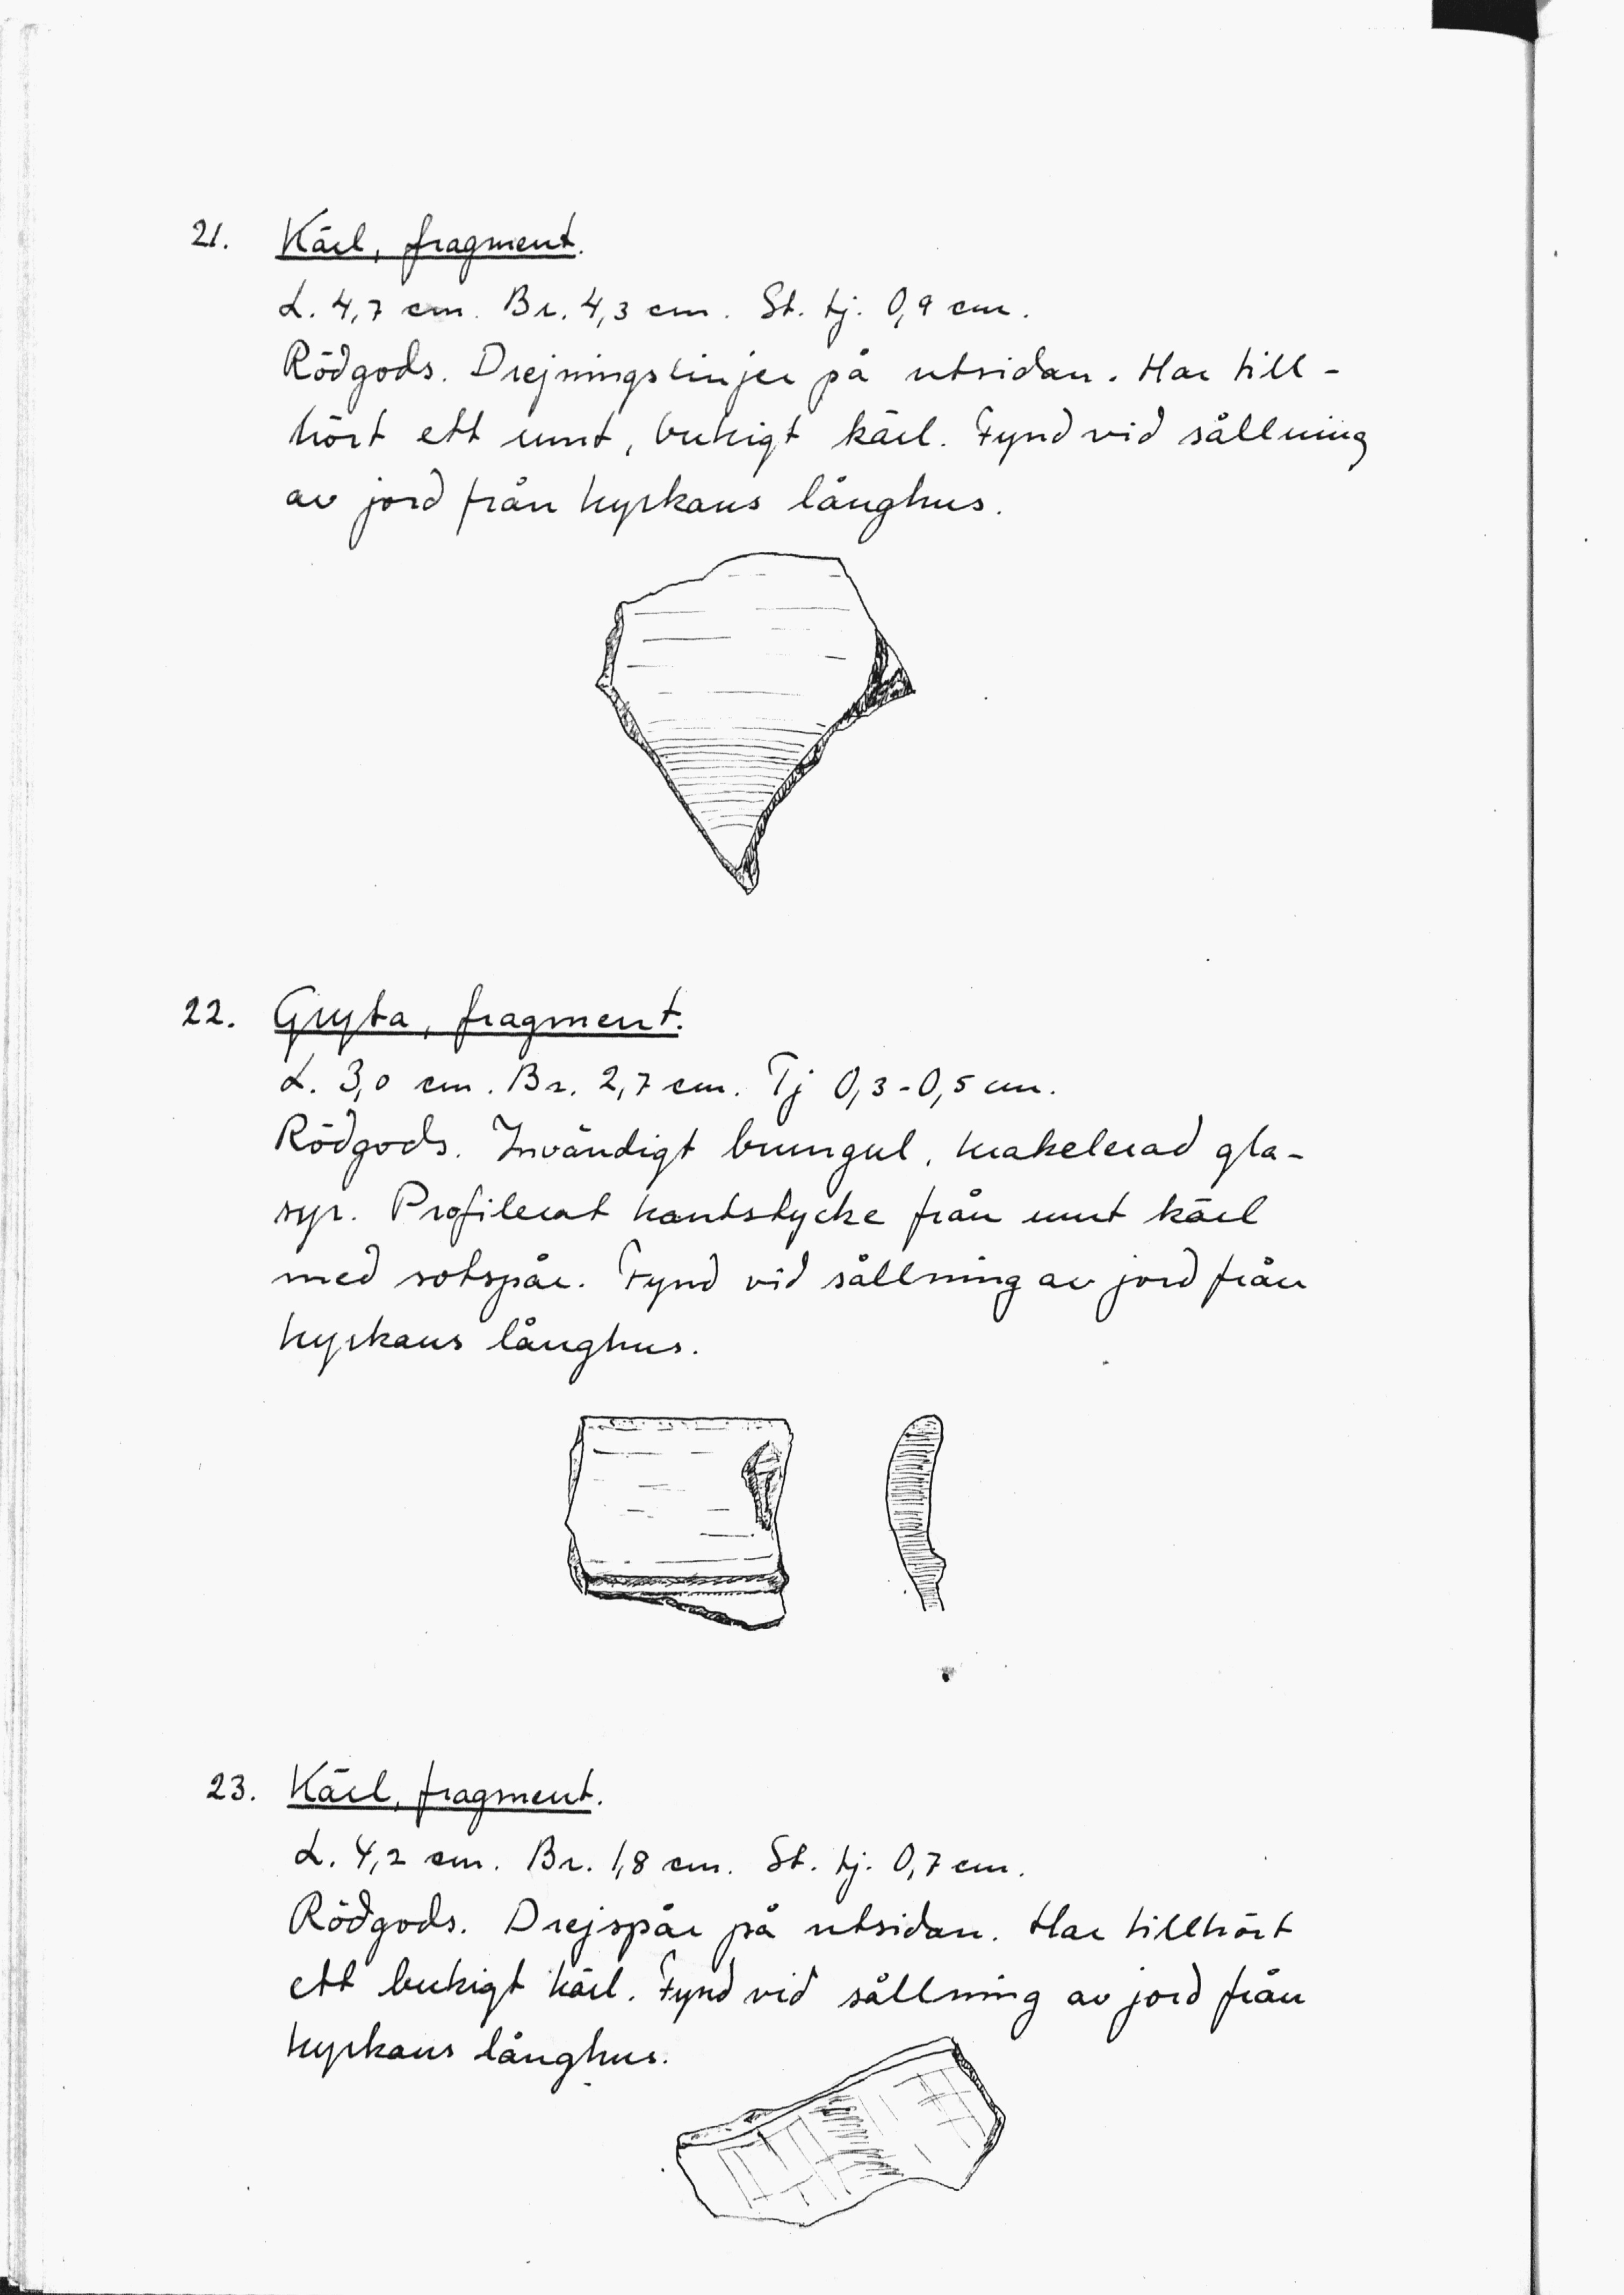 21. Kärl, fragment.
L. 4,7 cm. Br. 4,3 cm. St. tj. 0,9 cm.
Rödgods. Drejningslinjer på utsidan. Har till-
hört ett runt, bukigt kärl. Fynd vid sållning
av jord från kyrkans långhus.
22. Gryta, fragment.
L. 3,0 cm. Br. 2,7 cm. Tj 0,3-0,5 cm.
Rödgods. Invändigt brungul, krakelerad gla-
syr. Profilerat kantstycke från runt kärl
med sotspår. Fynd vid sållning av jord från
kyrkans långhus.
23. Kärl, fragment.
L. 4,2 cm. Br. 1,8 cm. St. tj. 0,7 cm.
Rödgods. Drejspår på utsidan. Har tillhört
ett bukigt kärl. Fynd vid sållning av jord från
kyrkans långhus.